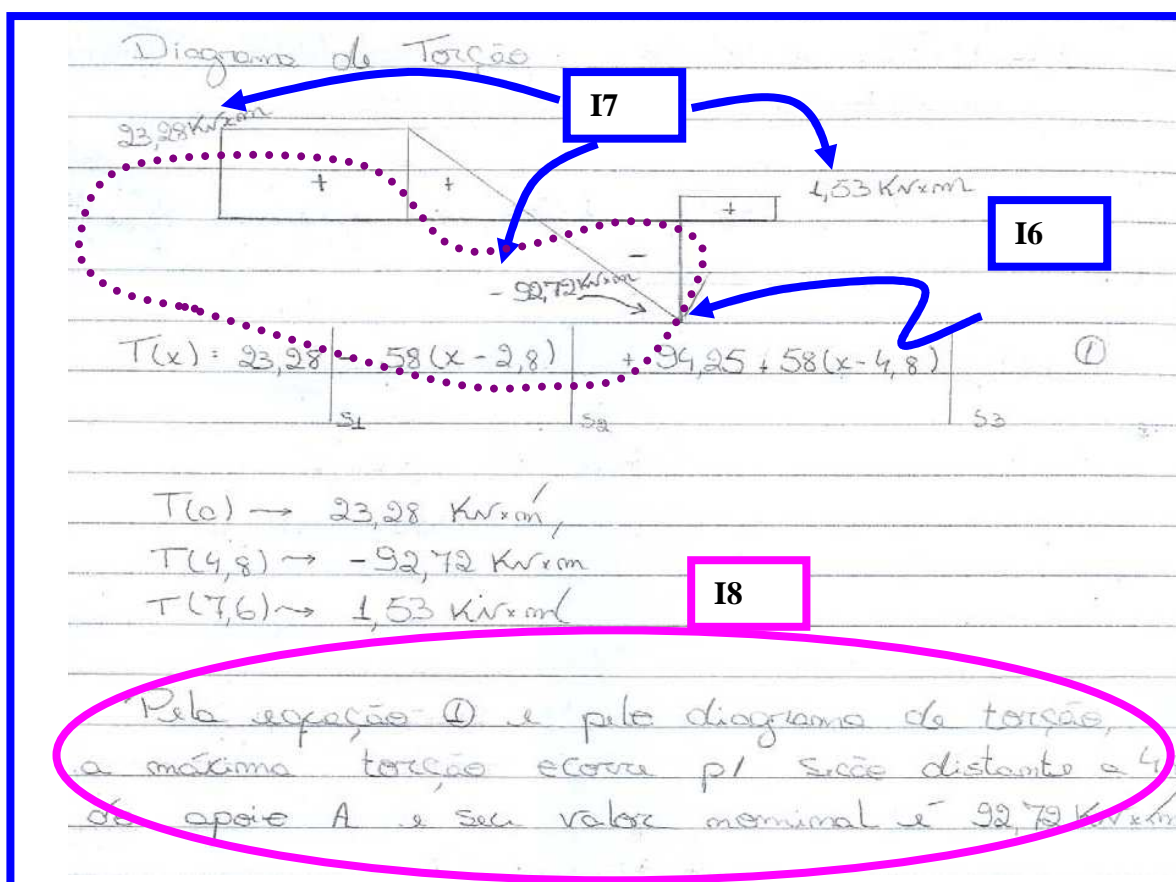 Diagrama de Torção
I7
23,28 KN×m
+ +
1,53 KN×m
+
I6
-
- 92,72 KN×m
T(x) = 23,28 - 58(x - 2,8) + 94,25 + 58(x - 4,8) ①
S1 S2 S3
T(0) → 23,28 KN×m
T(4,8) → -92,72 KN×m
I8
T(7,6) → 1,53 KN×m
Pela equação ① e pelo diagrama de torção,
a máxima torção ocorre p/ seção distante a 4,
do apoio A e seu valor nominal é 92,72 KN×m